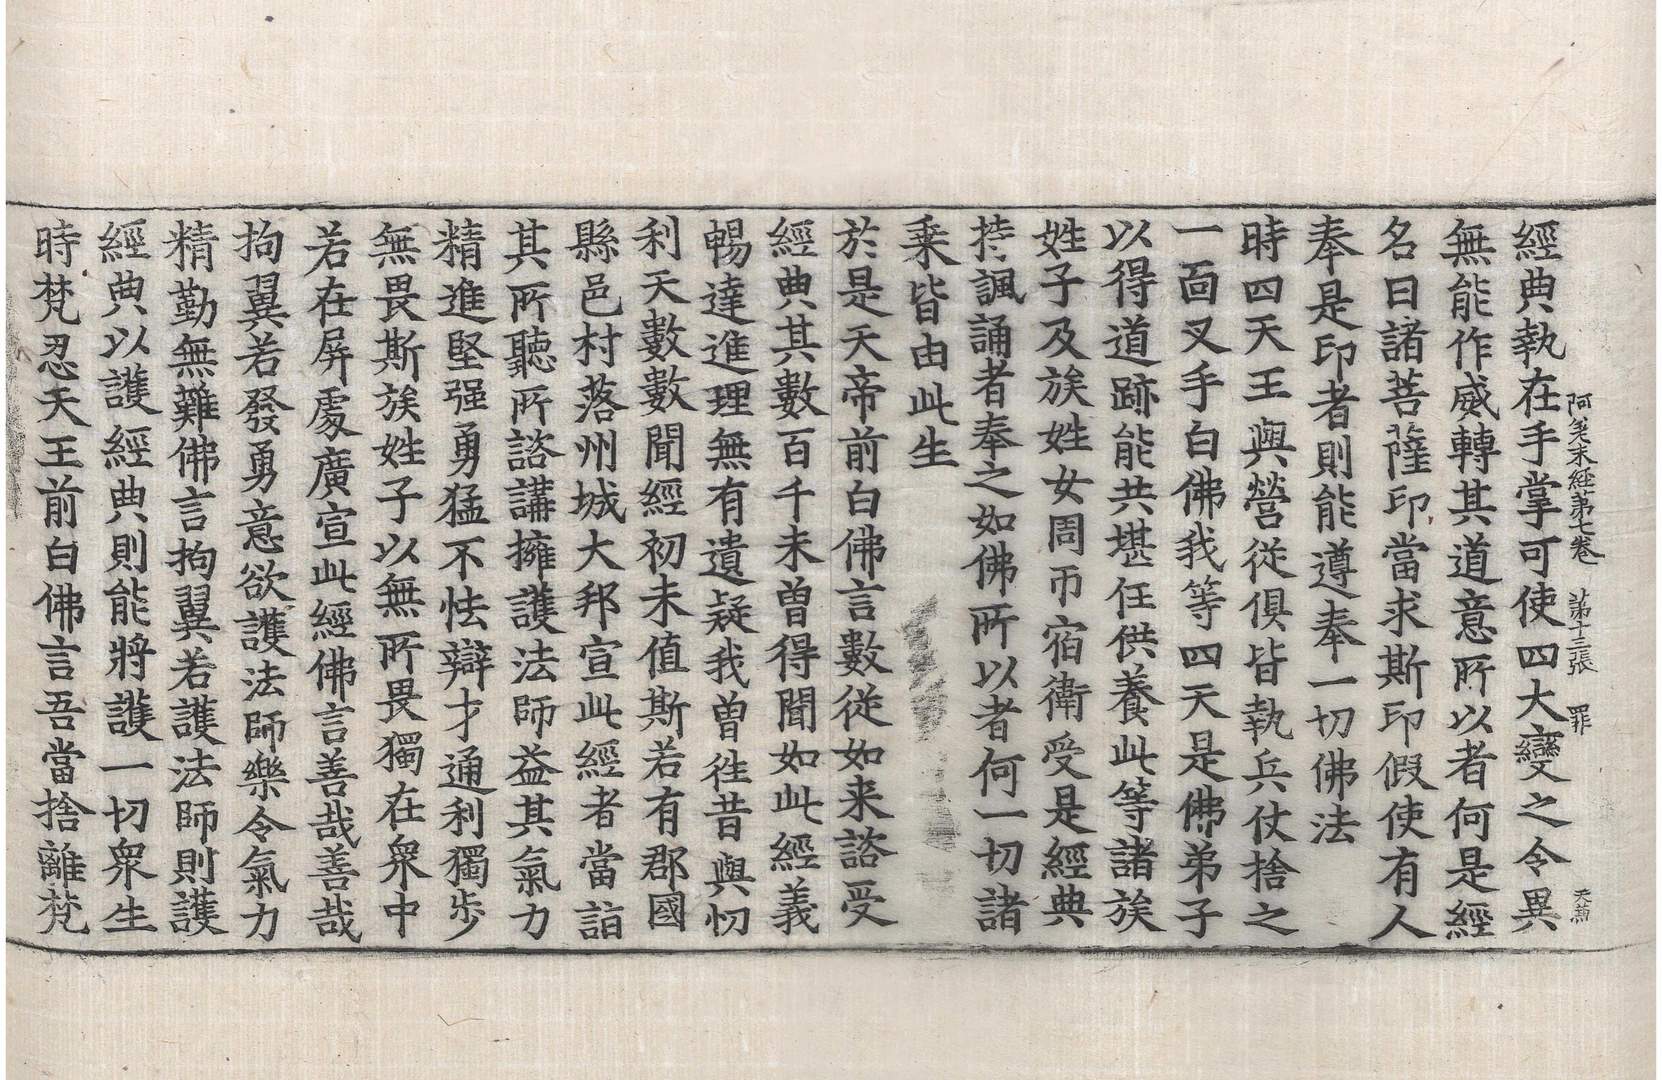 阿差末經第七卷　第十三張　罪
經典執在手掌可使四大變之令異
無能作威轉其道意所以者何是經
名曰諸菩薩印當求斯印假使有人
奉是印者則能遵奉一切佛法
時四天王與營從俱皆執兵仗捨之
一面叉手白佛我等四天是佛弟子
以得道跡能共堪任供養此等諸族
姓子及族姓女周帀宿衛受是經典
持諷誦者奉之如佛所以者何一切諸
乘皆由此生
於是天帝前白佛言數從如来諮受
經典其數百千未曾得聞如此經義
暢達進理無有遺疑我曾往昔與忉
利天數數聞經初未值斯若有郡國
縣邑村落州城大邦宣此經者當詣
其所聽所諮講擁護法師益其氣力
精進堅强勇猛不怯辯才通利獨步
無畏斯族姓子以無所畏獨在衆中
若在屏處廣宣此經佛言善哉善哉
拘翼若發勇意欲護法師樂令氣力
精勤無難佛言拘翼若護法師則護
經典以護經典則能將護一切衆生
時梵忍天王前白佛言吾當捨離梵